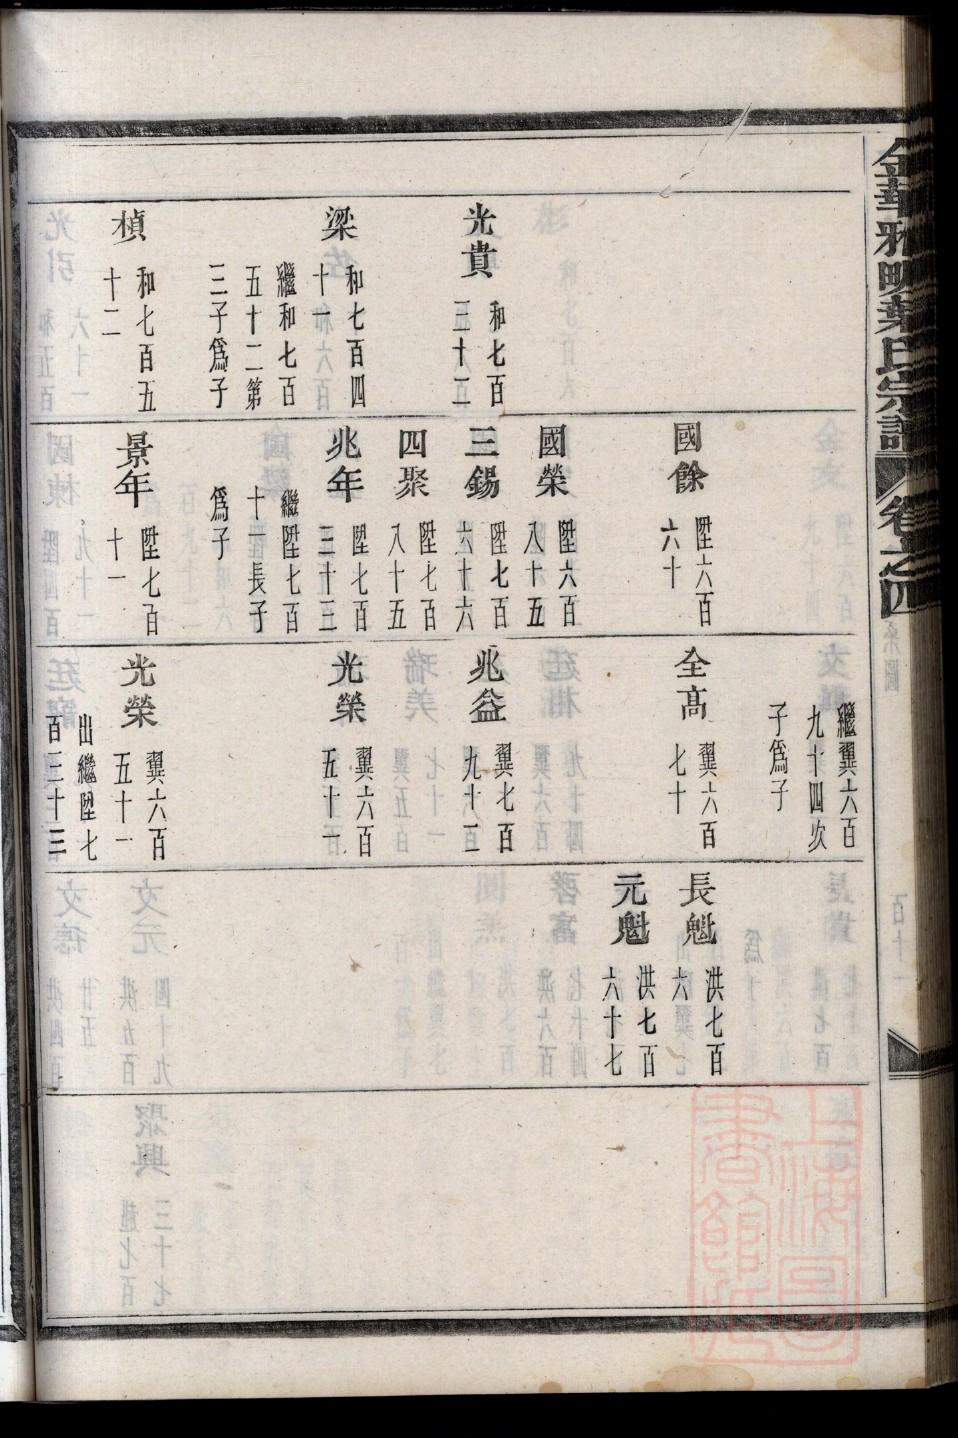 金華雅畈葉氏宗譜
卷之四
光貴
和七百
三十二
梁
和七百四
十一
繼和七百
五十二第
三子爲子
楨
和七百五
十二
國餘
陞六百
六十
國榮
陞六百
八十五
三錫
陞七百
六十六
四聚
陞七百
八十五
兆年
陞七百
三十三
繼陞七百
十一長子
爲子
景年
陞七百
十一
繼翼六百
九十四次
子爲子
全高
翼六百
七十
兆益
翼七百
九十二
光榮
翼六百
五十一
光榮
翼六百
五十一
出繼陞七
百三十三
長魁
洪七百
六
元魁
洪七百
六十七
上海圖
書館藏